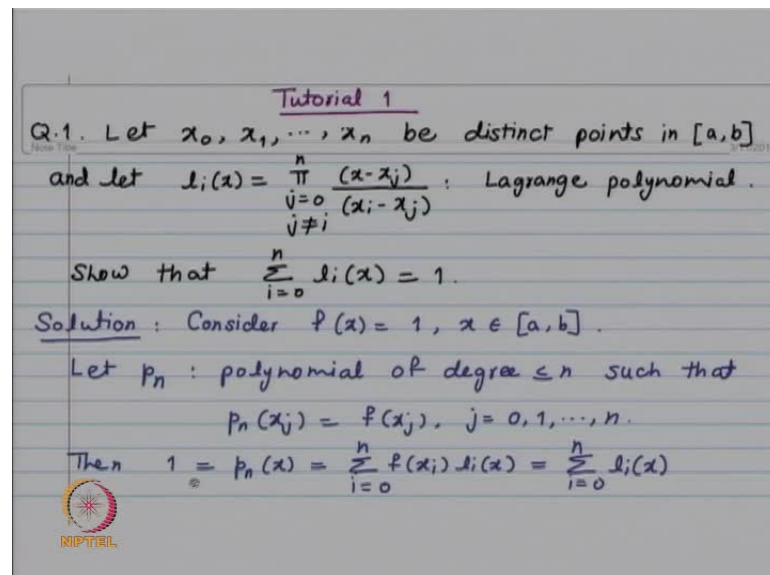 Tutorial 1
Q.1. Let x₀, x₁, ..., xₙ be distinct points in [a,b]
Note Title
and let lᵢ(x) = ∏_{j=0, j≠i}^{n} (x-xⱼ)/(xᵢ-xⱼ) : Lagrange polynomial.
Show that ∑_{i=0}^{n} lᵢ(x) = 1.
Solution : Consider f(x) = 1, x ∈ [a,b].
Let pₙ : polynomial of degree ≤ n such that
pₙ(xⱼ) = f(xⱼ), j = 0, 1, ..., n.
Then 1 = pₙ(x) = ∑_{i=0}^{n} f(xᵢ) lᵢ(x) = ∑_{i=0}^{n} lᵢ(x)
NPTEL